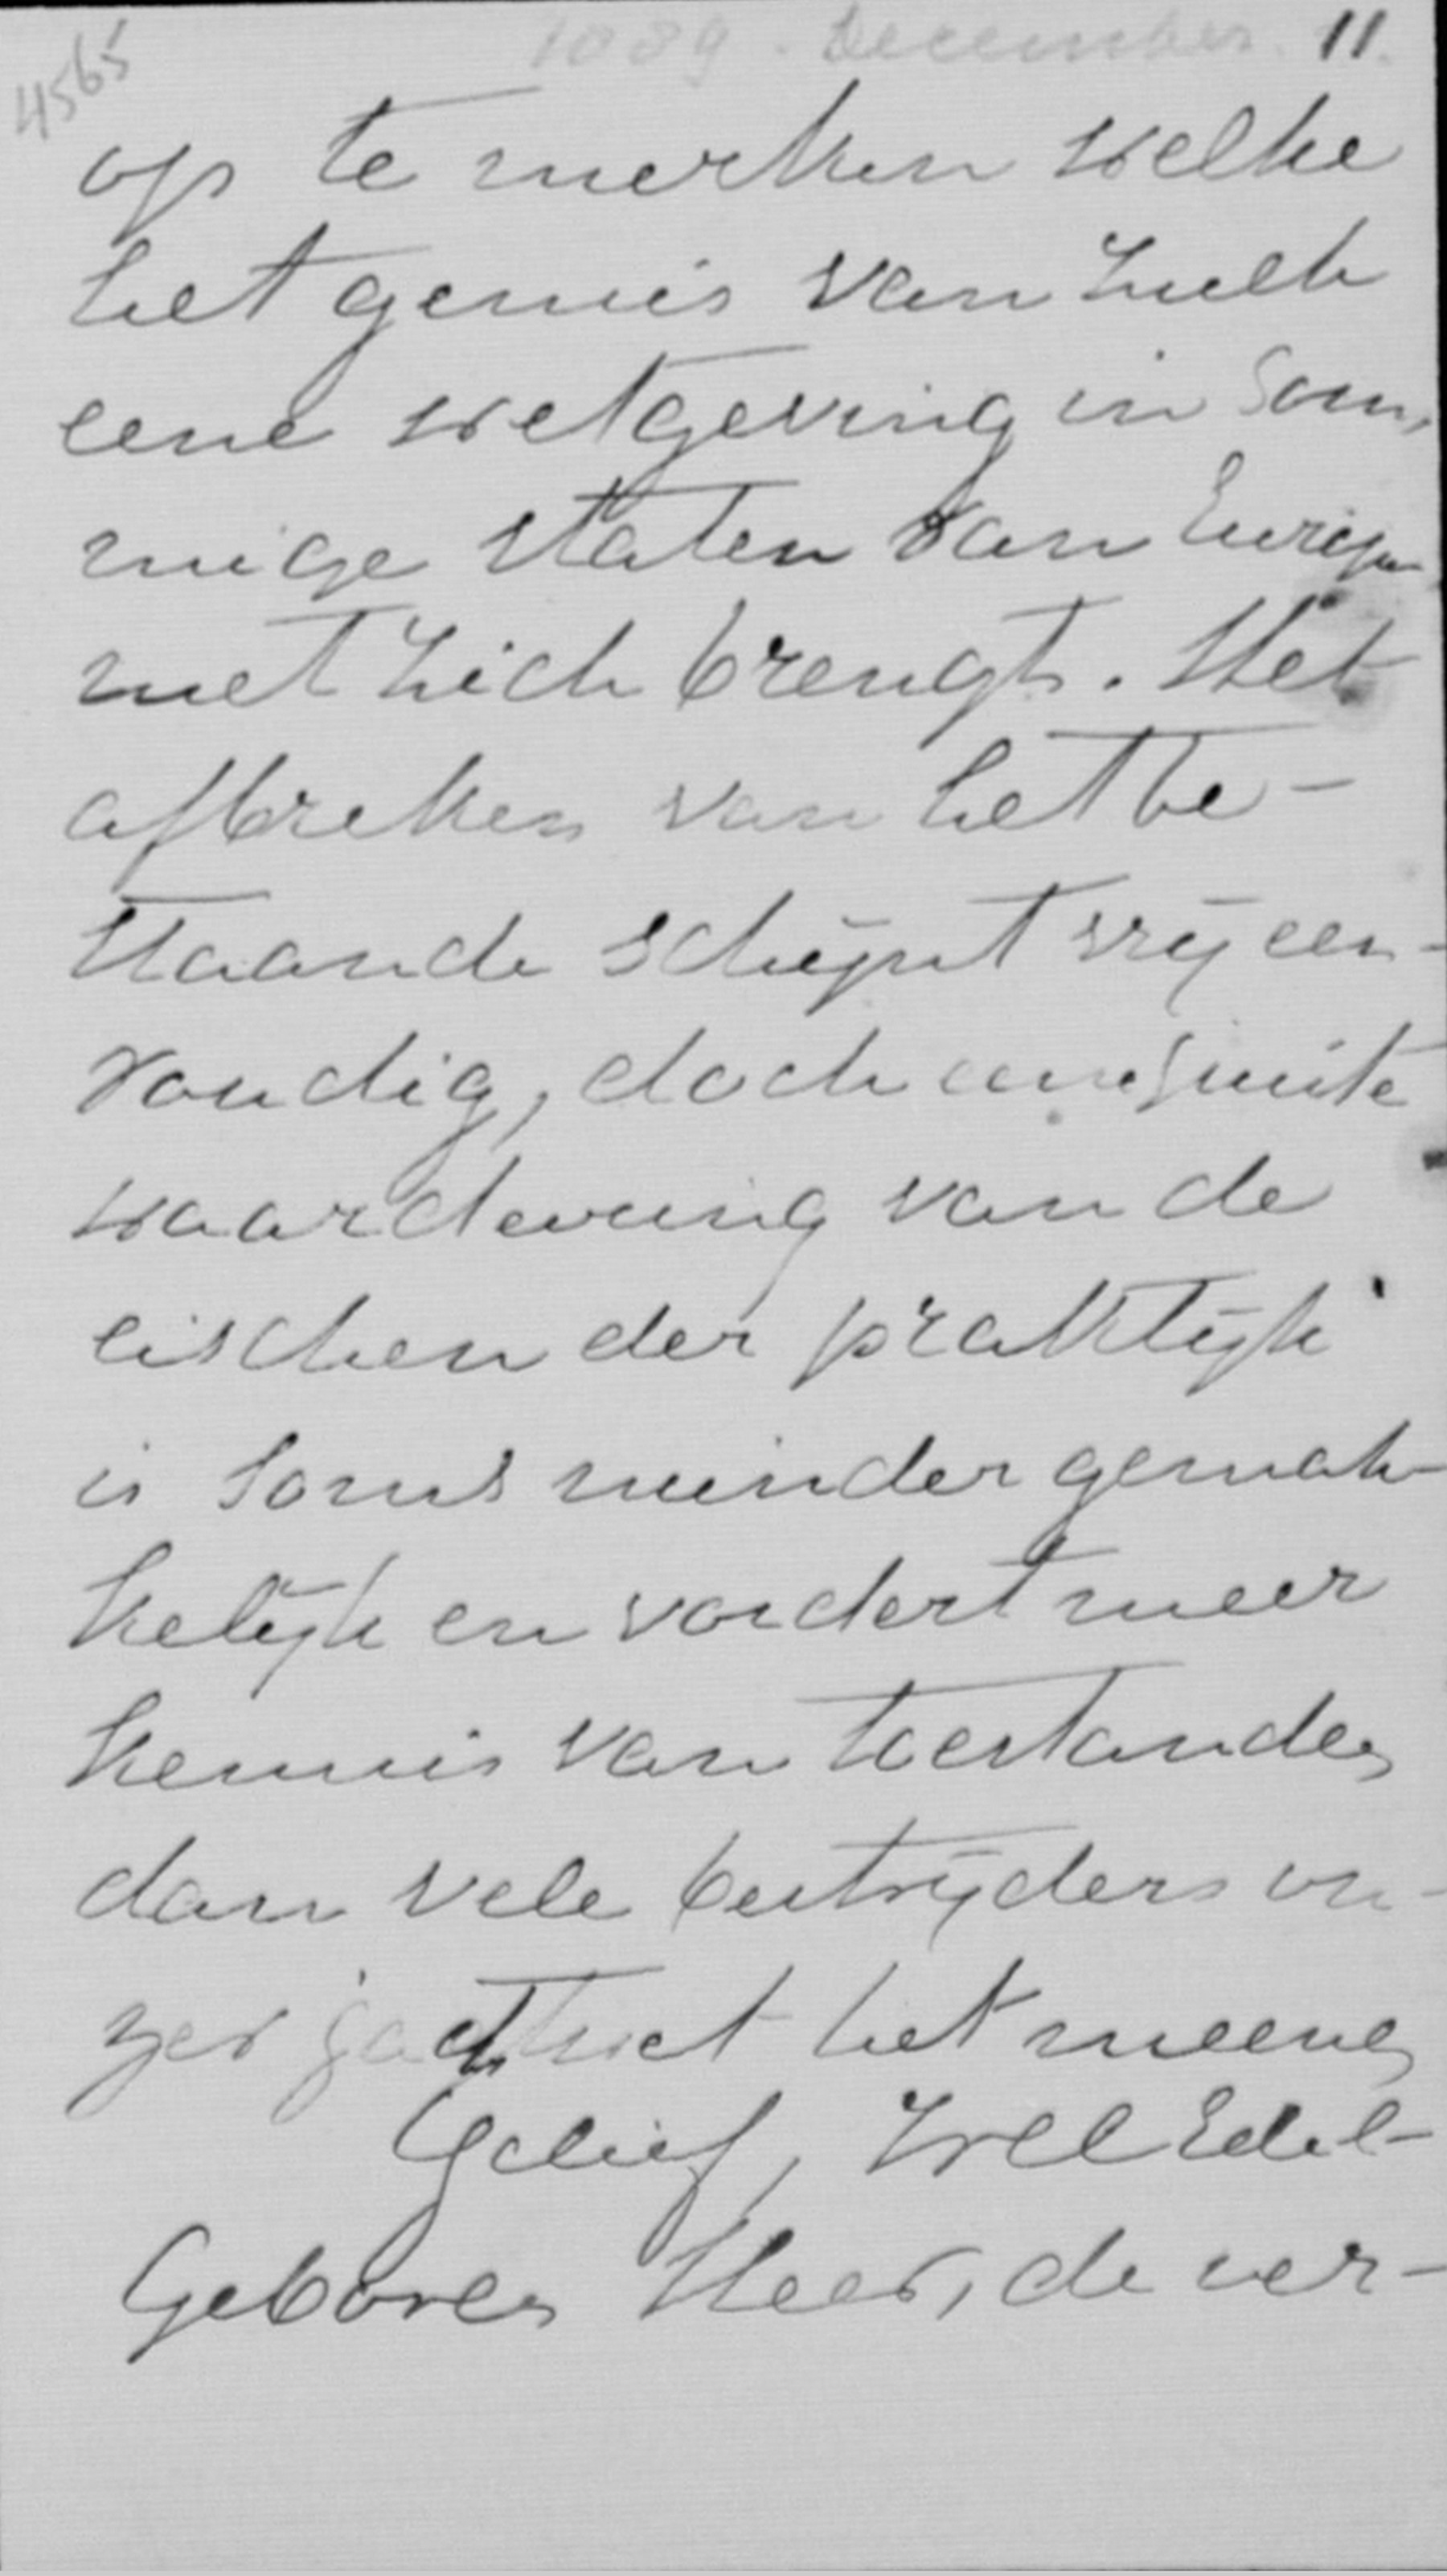 4565 1889. December. 11.
op te merken welke
het gemis van zulk
eene wetgeving in som,
mige staten van Europa
met zich brengt. Het
afbreken van het be-
staande schijnt vrij een-
voudig, doch eene juiste
waardeering van de
eischen der praktijk
is soms minder gemak-
kelijk en vordert meer
kennis van toestanden
dan vele bestrijders on-
zer jachtwet het meenen
Gelief, WelEdel-
Geboren Heer, de ver-